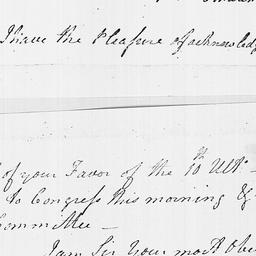 I have the Pleasure of acknowled
of your Favor of the 10th Ult.
to Congress this morning &
Committee
I am Sir Your most Obe